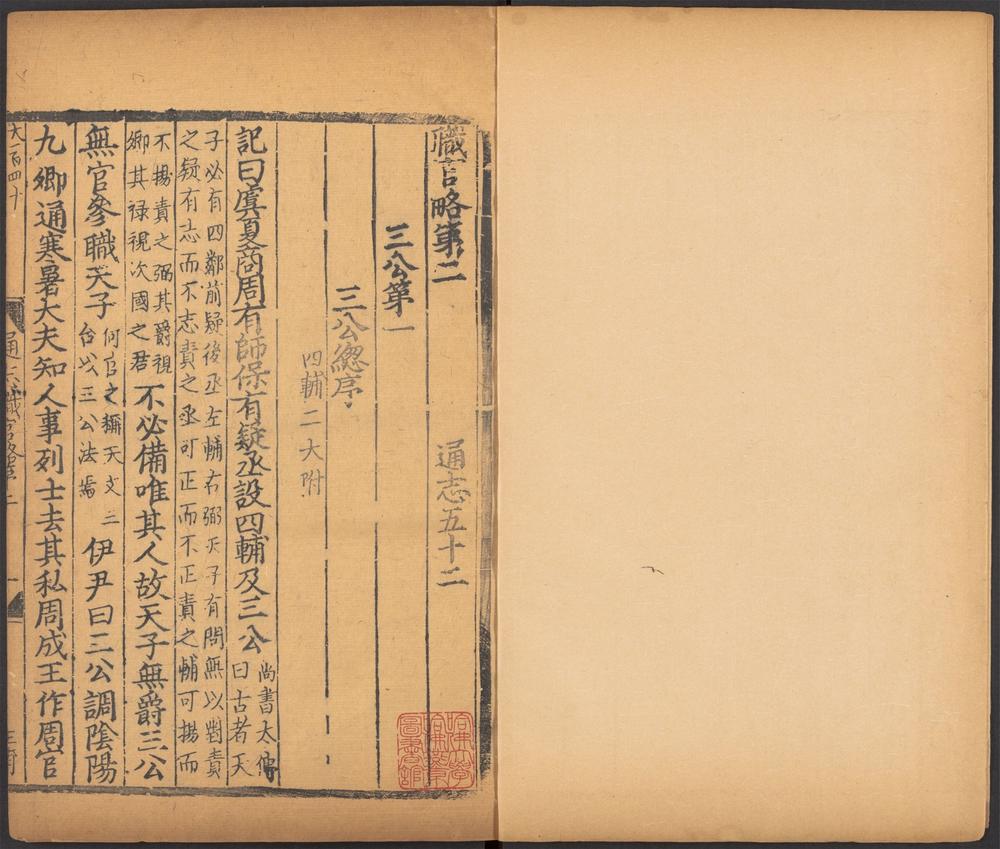 職官略第二　通志五十二
三公第一
三公總序
四輔二大附
記曰虞夏商周有師保有疑丞設四輔及三公尚書大傳
曰古者天
子必有四鄰前疑後丞左輔右弼天子有問無以對責
之疑有志而不志責之丞可正而不正責之輔可揚而
不揚責之弼其爵視
卿其祿視次國之君不必備唯其人故天子無爵三公
無官參職天子何官之稱天文三
台以三公法焉伊尹曰三公調陰陽
九卿通寒暑大夫知人事列士去其私周成王作周官
大一百四十
通志職官略第二
哈佛大學
哈佛燕京
圖書館